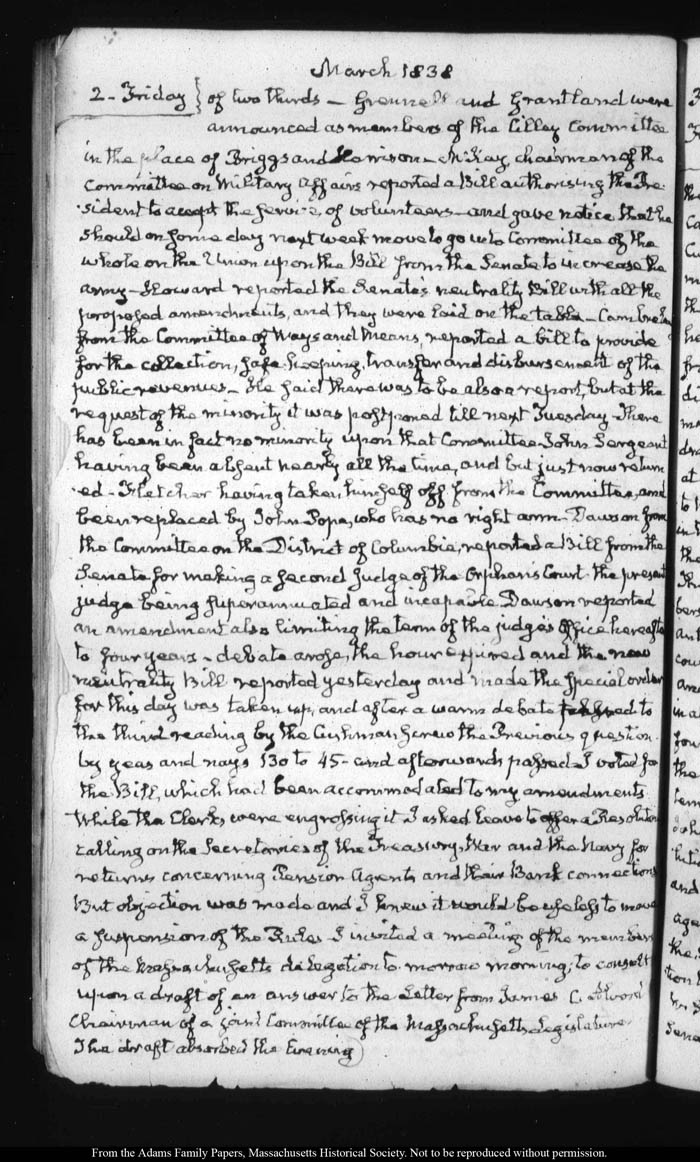 March 1838
2 - Friday } of two thirds - Grennell and Grantland were
announced as members of the Cilley Committee
in the place of Briggs and Harrison - McKay, chairman of the
Committee on Military Affairs reported a Bill authorising the Pre-
-sident to accept the service of volunteers - and gave notice that he
should on some day next week move to go into Committee of the
whole on the Union upon the Bill from the Senate to increase the
army - Howard reported the Senate's neutrality Bill with all the
proposed amendments, and they were laid on the table -
from the Committee of Ways and Means, reported a bill to provide
for the collection, safe keeping, transfer and disbursement of the
public revenues - He said there was to be also a report, but at the
request of the minority it was postponed till next Tuesday - There
has been in fact no minority upon that Committee John Sergeant
having been absent nearly all the time, and but just now return
-ed - Fletcher having taken himself off from the Committee, and
been replaced by John Pope, who has no right arm - Dawson from
the Committee on the District of Columbia, reported a Bill from the
Senate for making a second Judge of the Orphan's Court the present
judge being superannuated and incapable. Dawson reported
an amendment also limiting the term of the judge's office hereafter
to four years - debate arose, the hour expired and the new
neutrality Bill reported yesterday and made the special order
for this day was taken up, and after a warm debate to
the third reading by the Cushman screw the Previous question.
by yeas and nays 130 to 45 - and afterwards passed. I voted for
the Bill, which had been accommodated to my amendments
While the Clerks were engrossing it I asked leave to offer a Resolution
calling on the Secretaries of the Treasury, War and the Navy for
returns concerning Pension Agents and their Bank connections
But objection was made and I knew it would be useless to move
a suspension of the Rules - I invited a meeting of the members
of the Massachusetts delegation to-morrow morning, to consult
upon a draft of an answer to the Letter from James C. Alvord
Chairman of a joint Committee of the Massachusetts Legislature
The draft absorbed the Evening
From the Adams Family Papers, Massachusetts Historical Society. Not to be reproduced without permission.